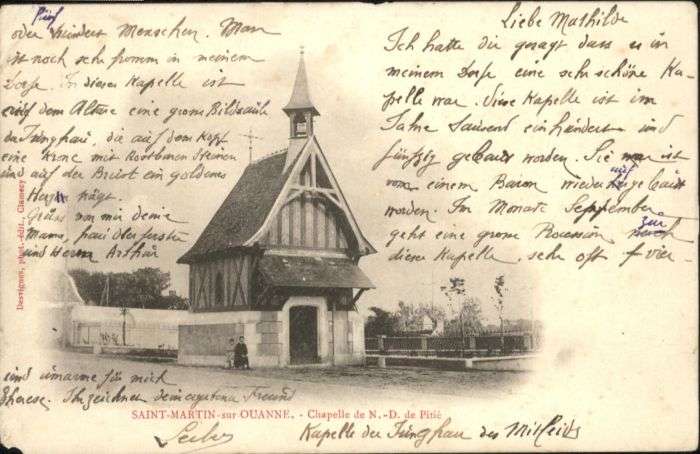 Liebe Mathilde
Ich hatte dir gesagt dass es in
meinem Dorfe eine sehr schöne Ka
pelle war. Diese Kapelle ist im
Jahre tausend einhundert und
fünfzig gebaut worden. Sie ist
von einem Baron wieder aufgebaut
worden. Im Monate September
geht eine grosse Procession zur
dieser Kapelle sehr oft vier
fünf
oder hundert Menschen. Man
ist noch sehr fromm in meinem
Dorfe. In dieser Kapelle ist
auf dem Altare eine grosse Bildsäule
der Jungfrau, die auf dem Kopf
eine Krone mit Kostbaren Steinen
und auf der Brust ein goldenes
Herz trägt.
Grüss von mir deine
Mama, frau Oberförster
und Herrn Arthur
und umarme für mich
therese. Ich zeichne dein ergebener Freund
Dessignes, phot.-édit., Clamecy
SAINT-MARTIN-sur OUANNE. - Chapelle de N.-D. de Pitié
Kapelle der Jungfrau des Mitleids